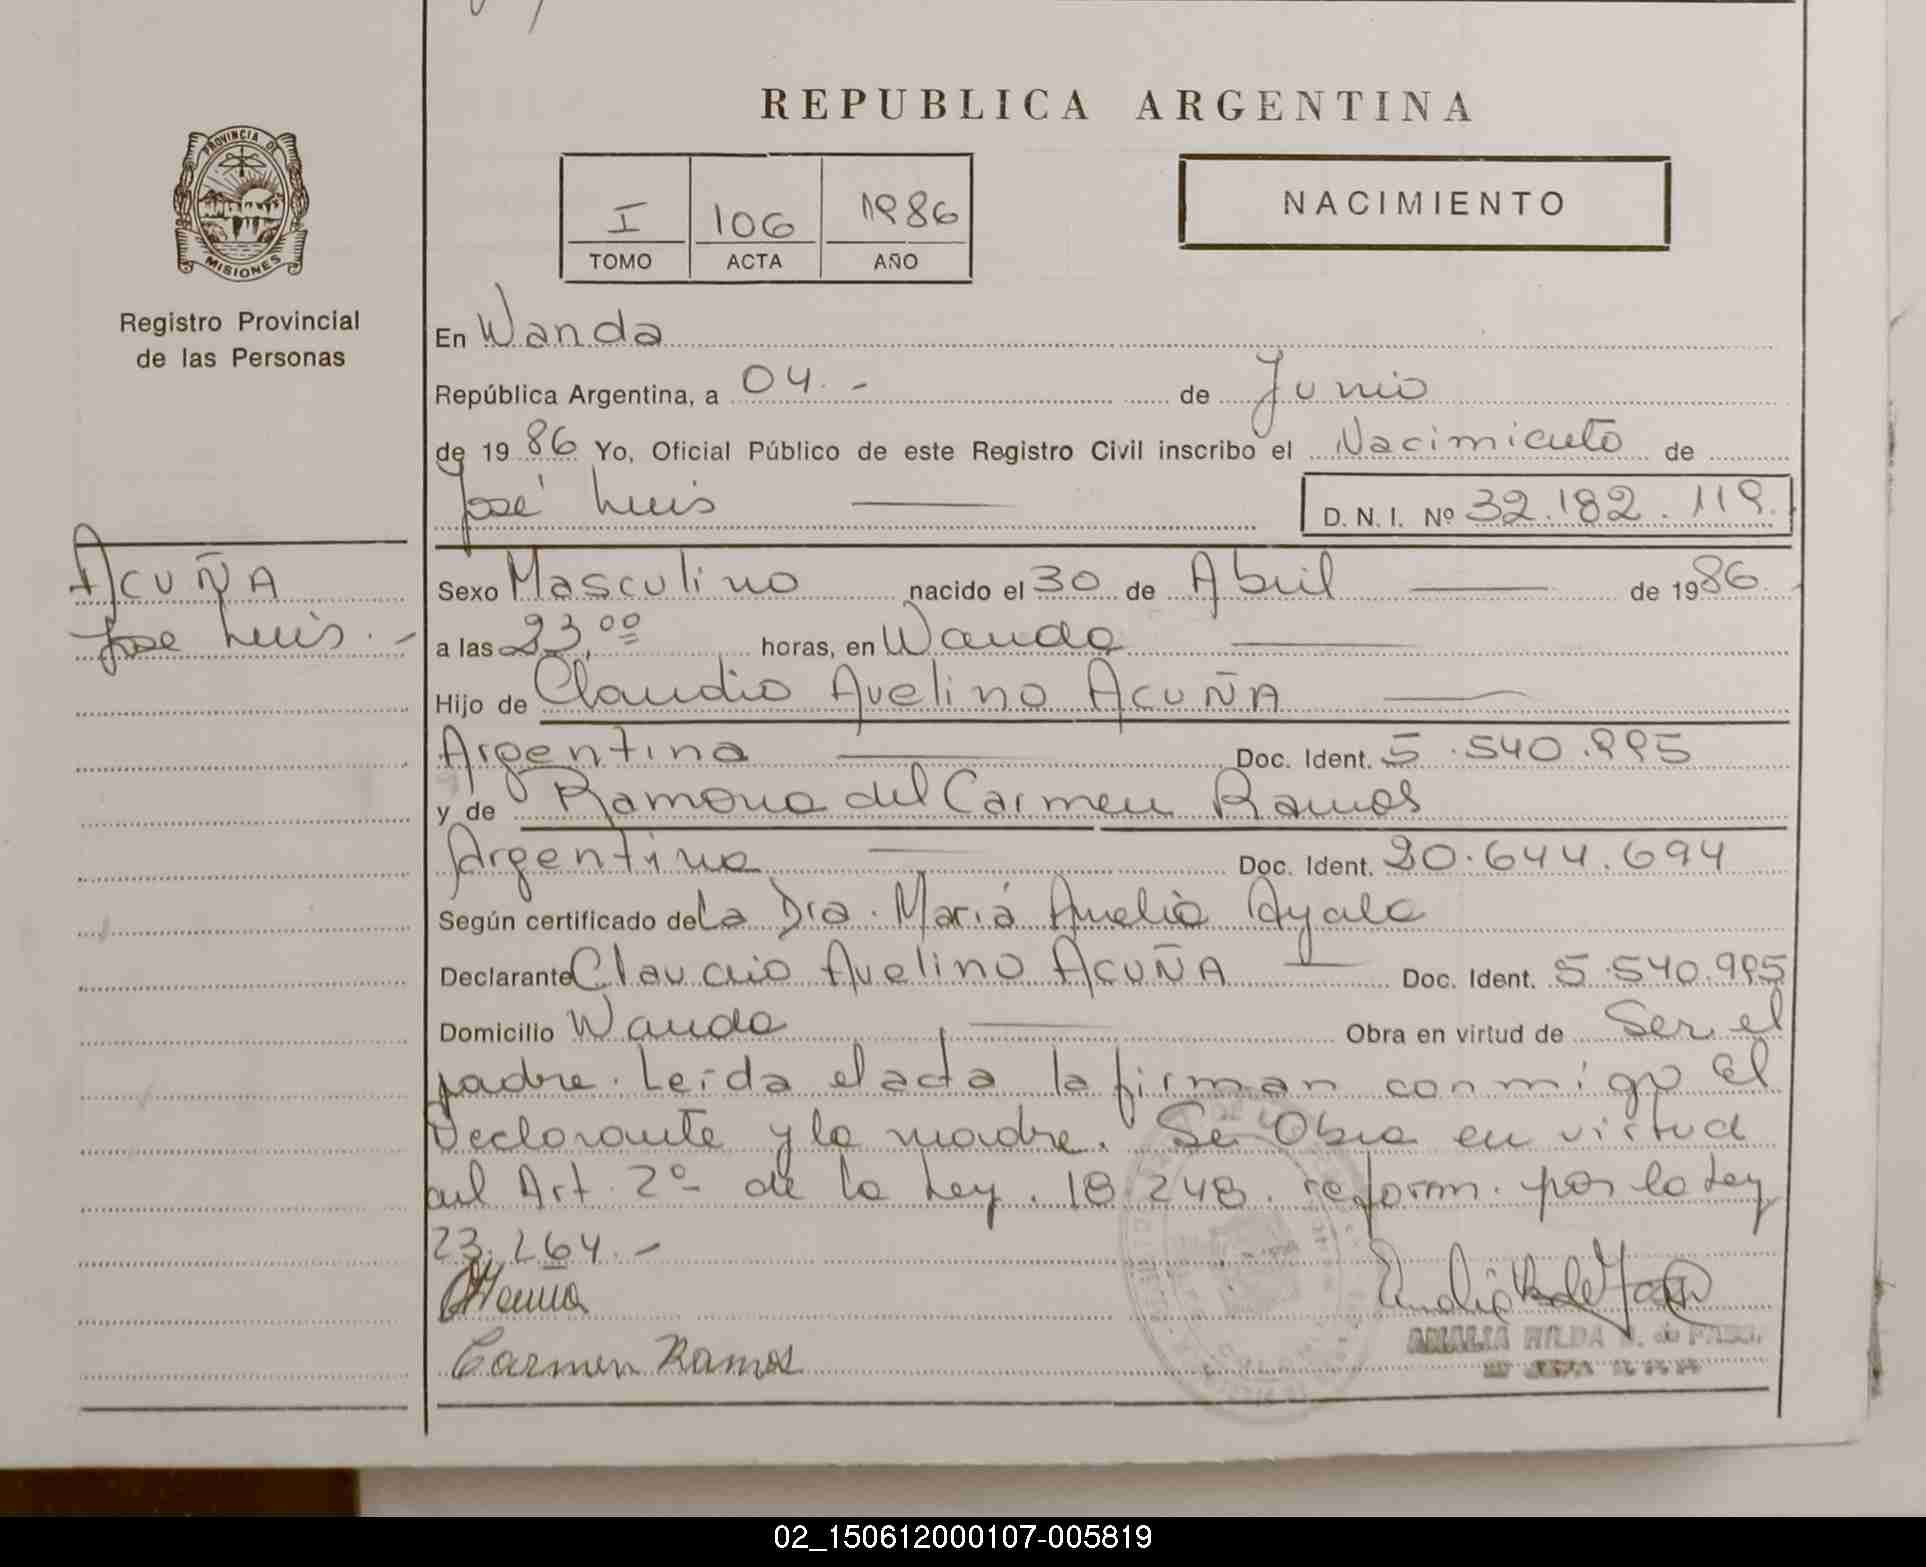 REPUBLICA ARGENTINA
PROVINCIA DE
MISIONES
Registro Provincial
de las Personas
I 106 1986
TOMO ACTA AÑO
NACIMIENTO
En Wanda
República Argentina, a 04.- de Junio
de 1986 Yo, Oficial Público de este Registro Civil inscribo el Nacimiento de
José Luis D. N. I. Nº 32.182.119.
ACUÑA
José Luis.-
Sexo Masculino nacido el 30 de Abril de 1986.
a las 23,00 horas, en Wanda
Hijo de Claudio Avelino ACUÑA
Argentina Doc. Ident. 5.540.995
y de Ramona del Carmen Ramos
Argentina Doc. Ident. 20.644.694
Según certificado de La Dra. María Amelia Ayala
Declarante Claudio Avelino ACUÑA Doc. Ident. 5.540.995
Domicilio Wanda Obra en virtud de Ser el
padre. Leída el acta la firman conmigo el
Declarante y la madre. Se Obra en virtud
del Art. 2º de la Ley. 18.248. reform. por la Ley
23.264.-
Carmen Ramos
AMALIA HILDA
02_150612000107-005819